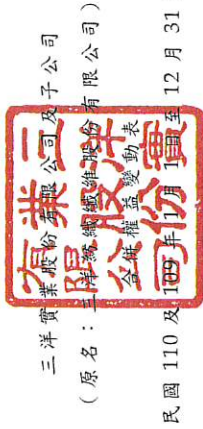 三洋實業股份有限公司及子公司
（原名：三洋紡織纖維股份有限公司）
合併權益變動表
民國 110 及 109 年 1 月 1 日至 12 月 31
三洋實業股份有限公司